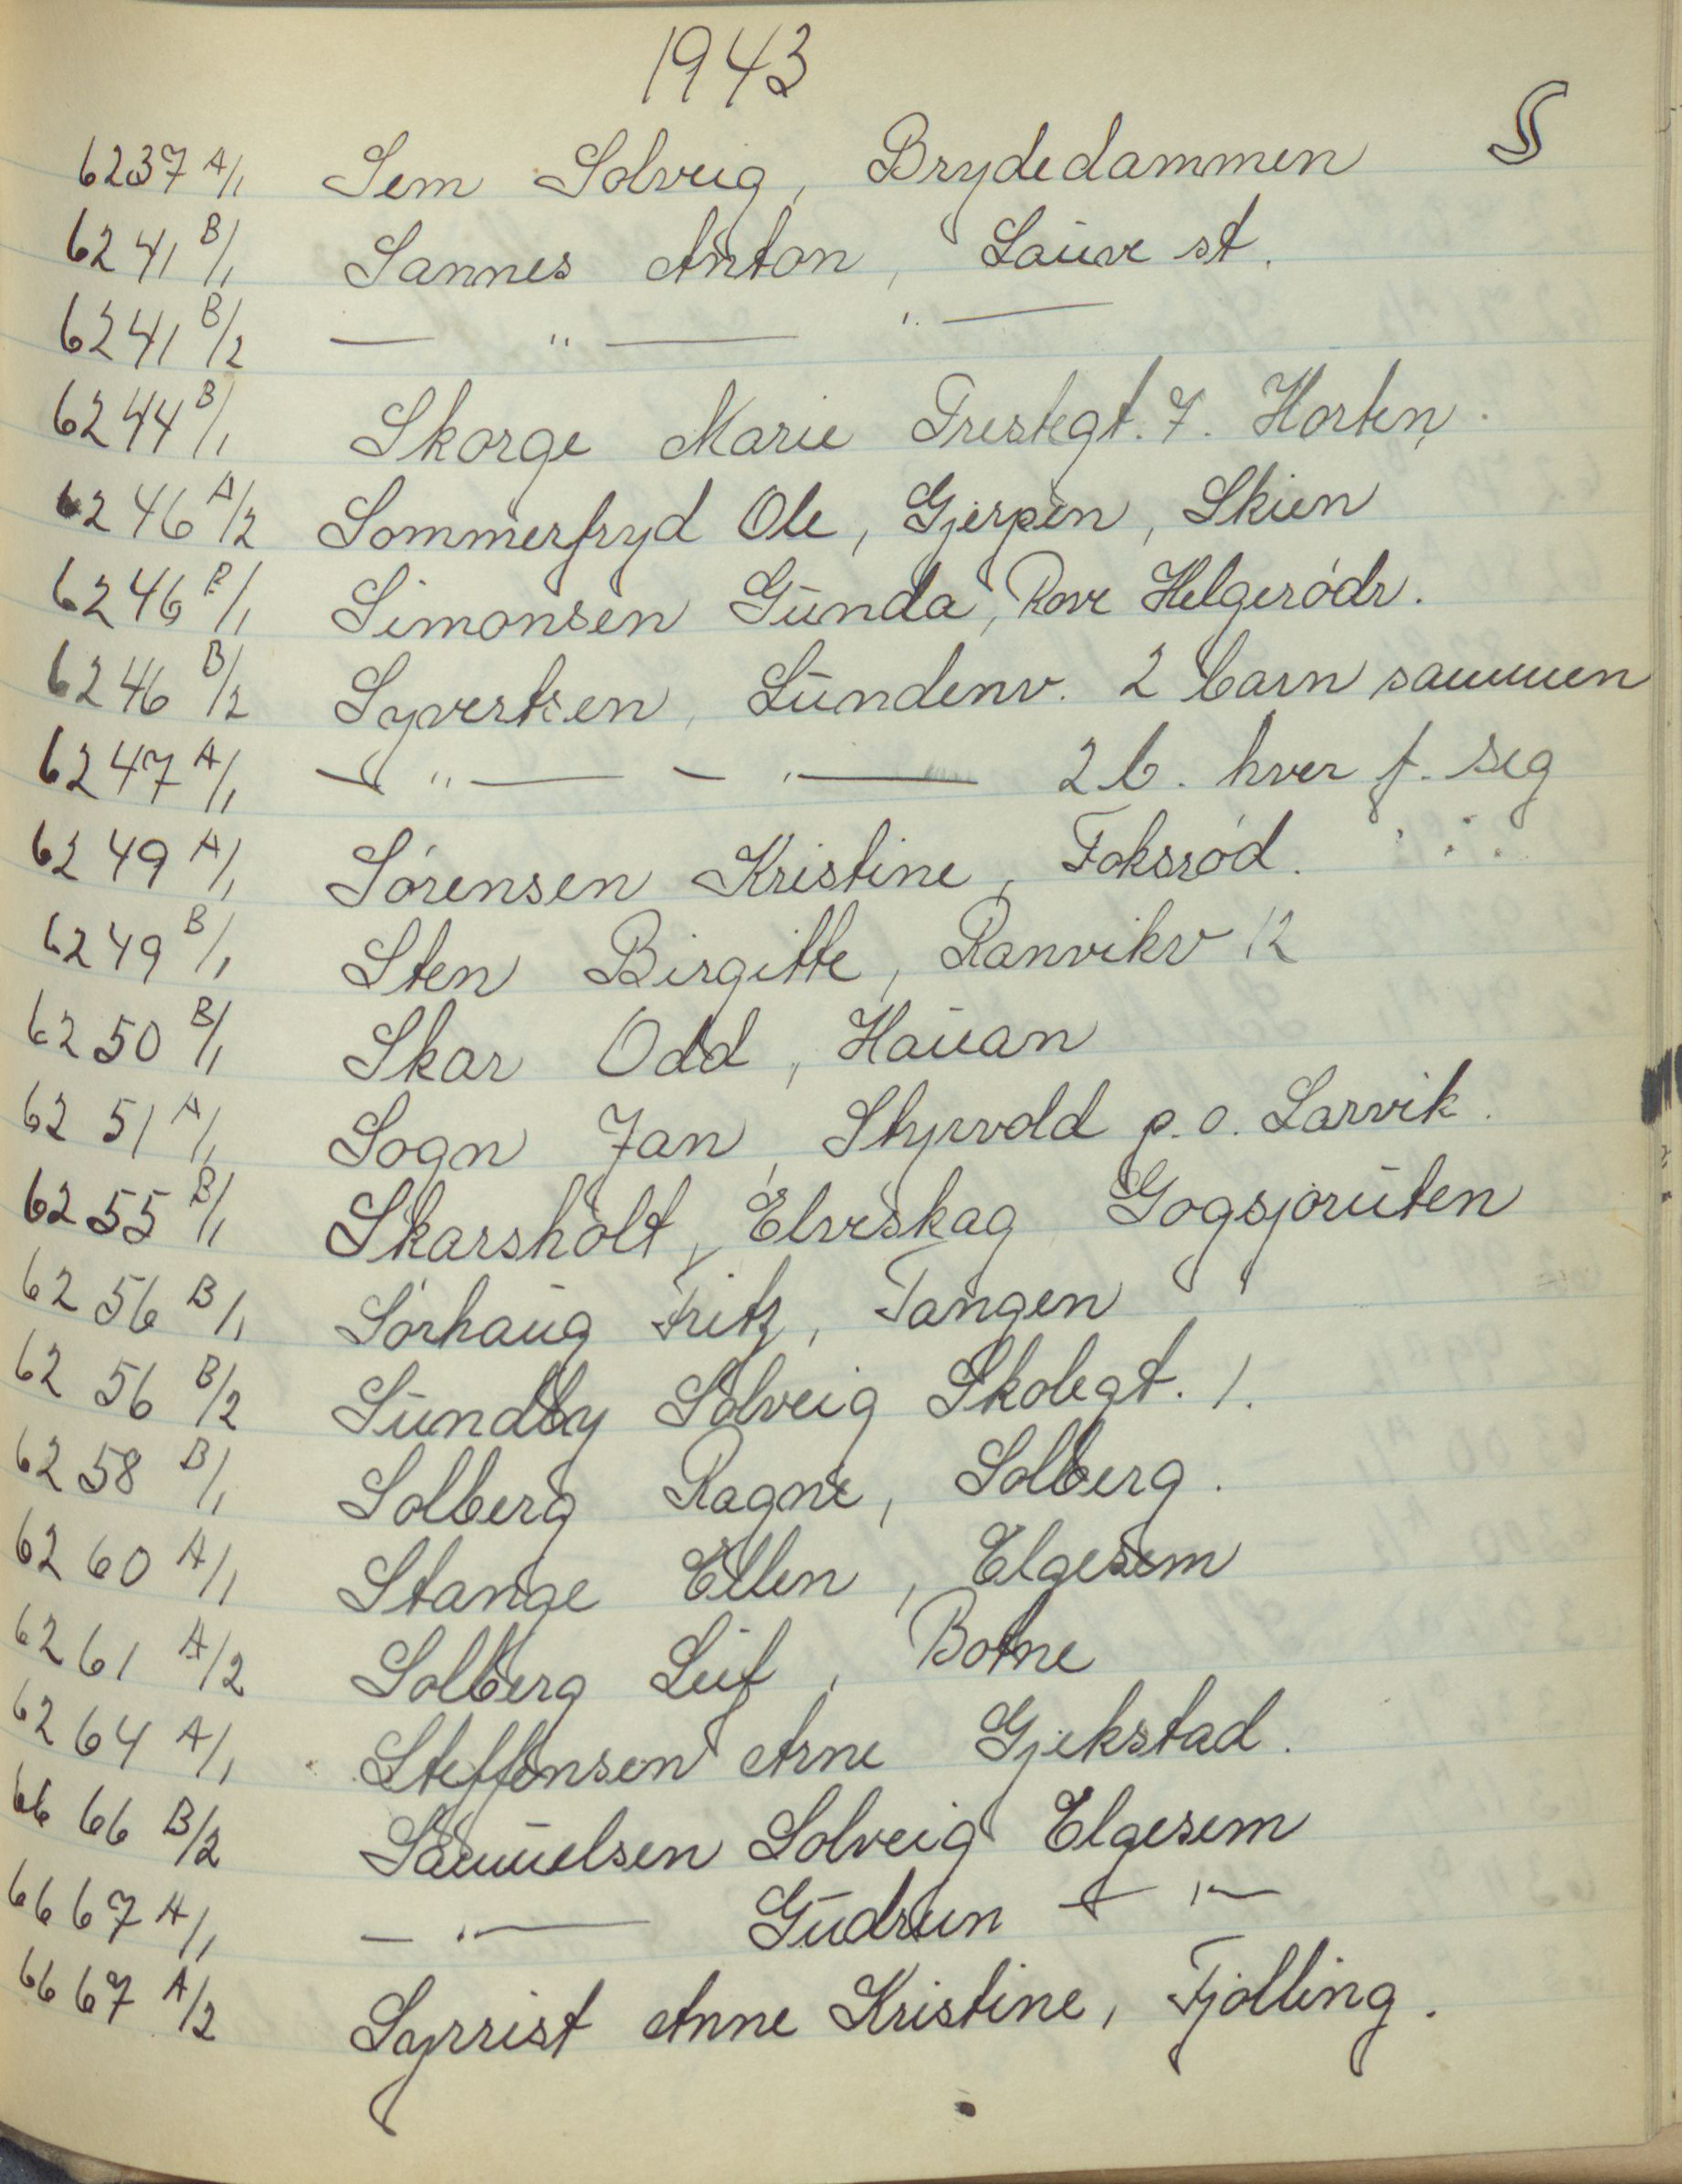 1943
S
6237 A/1 Sem Solveig, Brydedammen
6241 B/1 Sannes Anton, Lauve st.
6241 B/2 — " — " —
6244 B/1 Skorge Marie Prestegt. 7. Horten.
6246 A/2 Sommerfryd Ole, Gjerpen, Skien
6246 B/1 Simonsen Gunda, Rove Helgerödr.
6246 B/2 Syvertsen, Lundenv. 2 barn sammen
6247 A/1 — " — — " — 2 b. hver f. seg
6249 A/1 Sörensen Kristine, Foksröd.
6249 B/1 Sten Birgitte, Ranvikv 12
6250 B/1 Skar Odd, Hauan
6251 A/1 Sogn Jan, Styrvold p.o. Larvik.
6255 B/1 Skarsholt, Elveskag Gogsjoruten
6256 B/1 Sörhaug Fritz, Tangen
6256 B/2 Sundby Solveig Skolegt. 1.
6258 B/1 Solberg Ragne, Solberg.
6260 A/1 Stange Ellen, Elgesem
6261 A/2 Solberg Leif, Botne
6264 A/1 Steffensen Arne Gjekstad.
6666 B/2 Samuelsen Solveig Elgesem
6667 A/1 — " — Gudrun — " —
6667 A/2 Syrrist Anne Kristine, Tjolling.